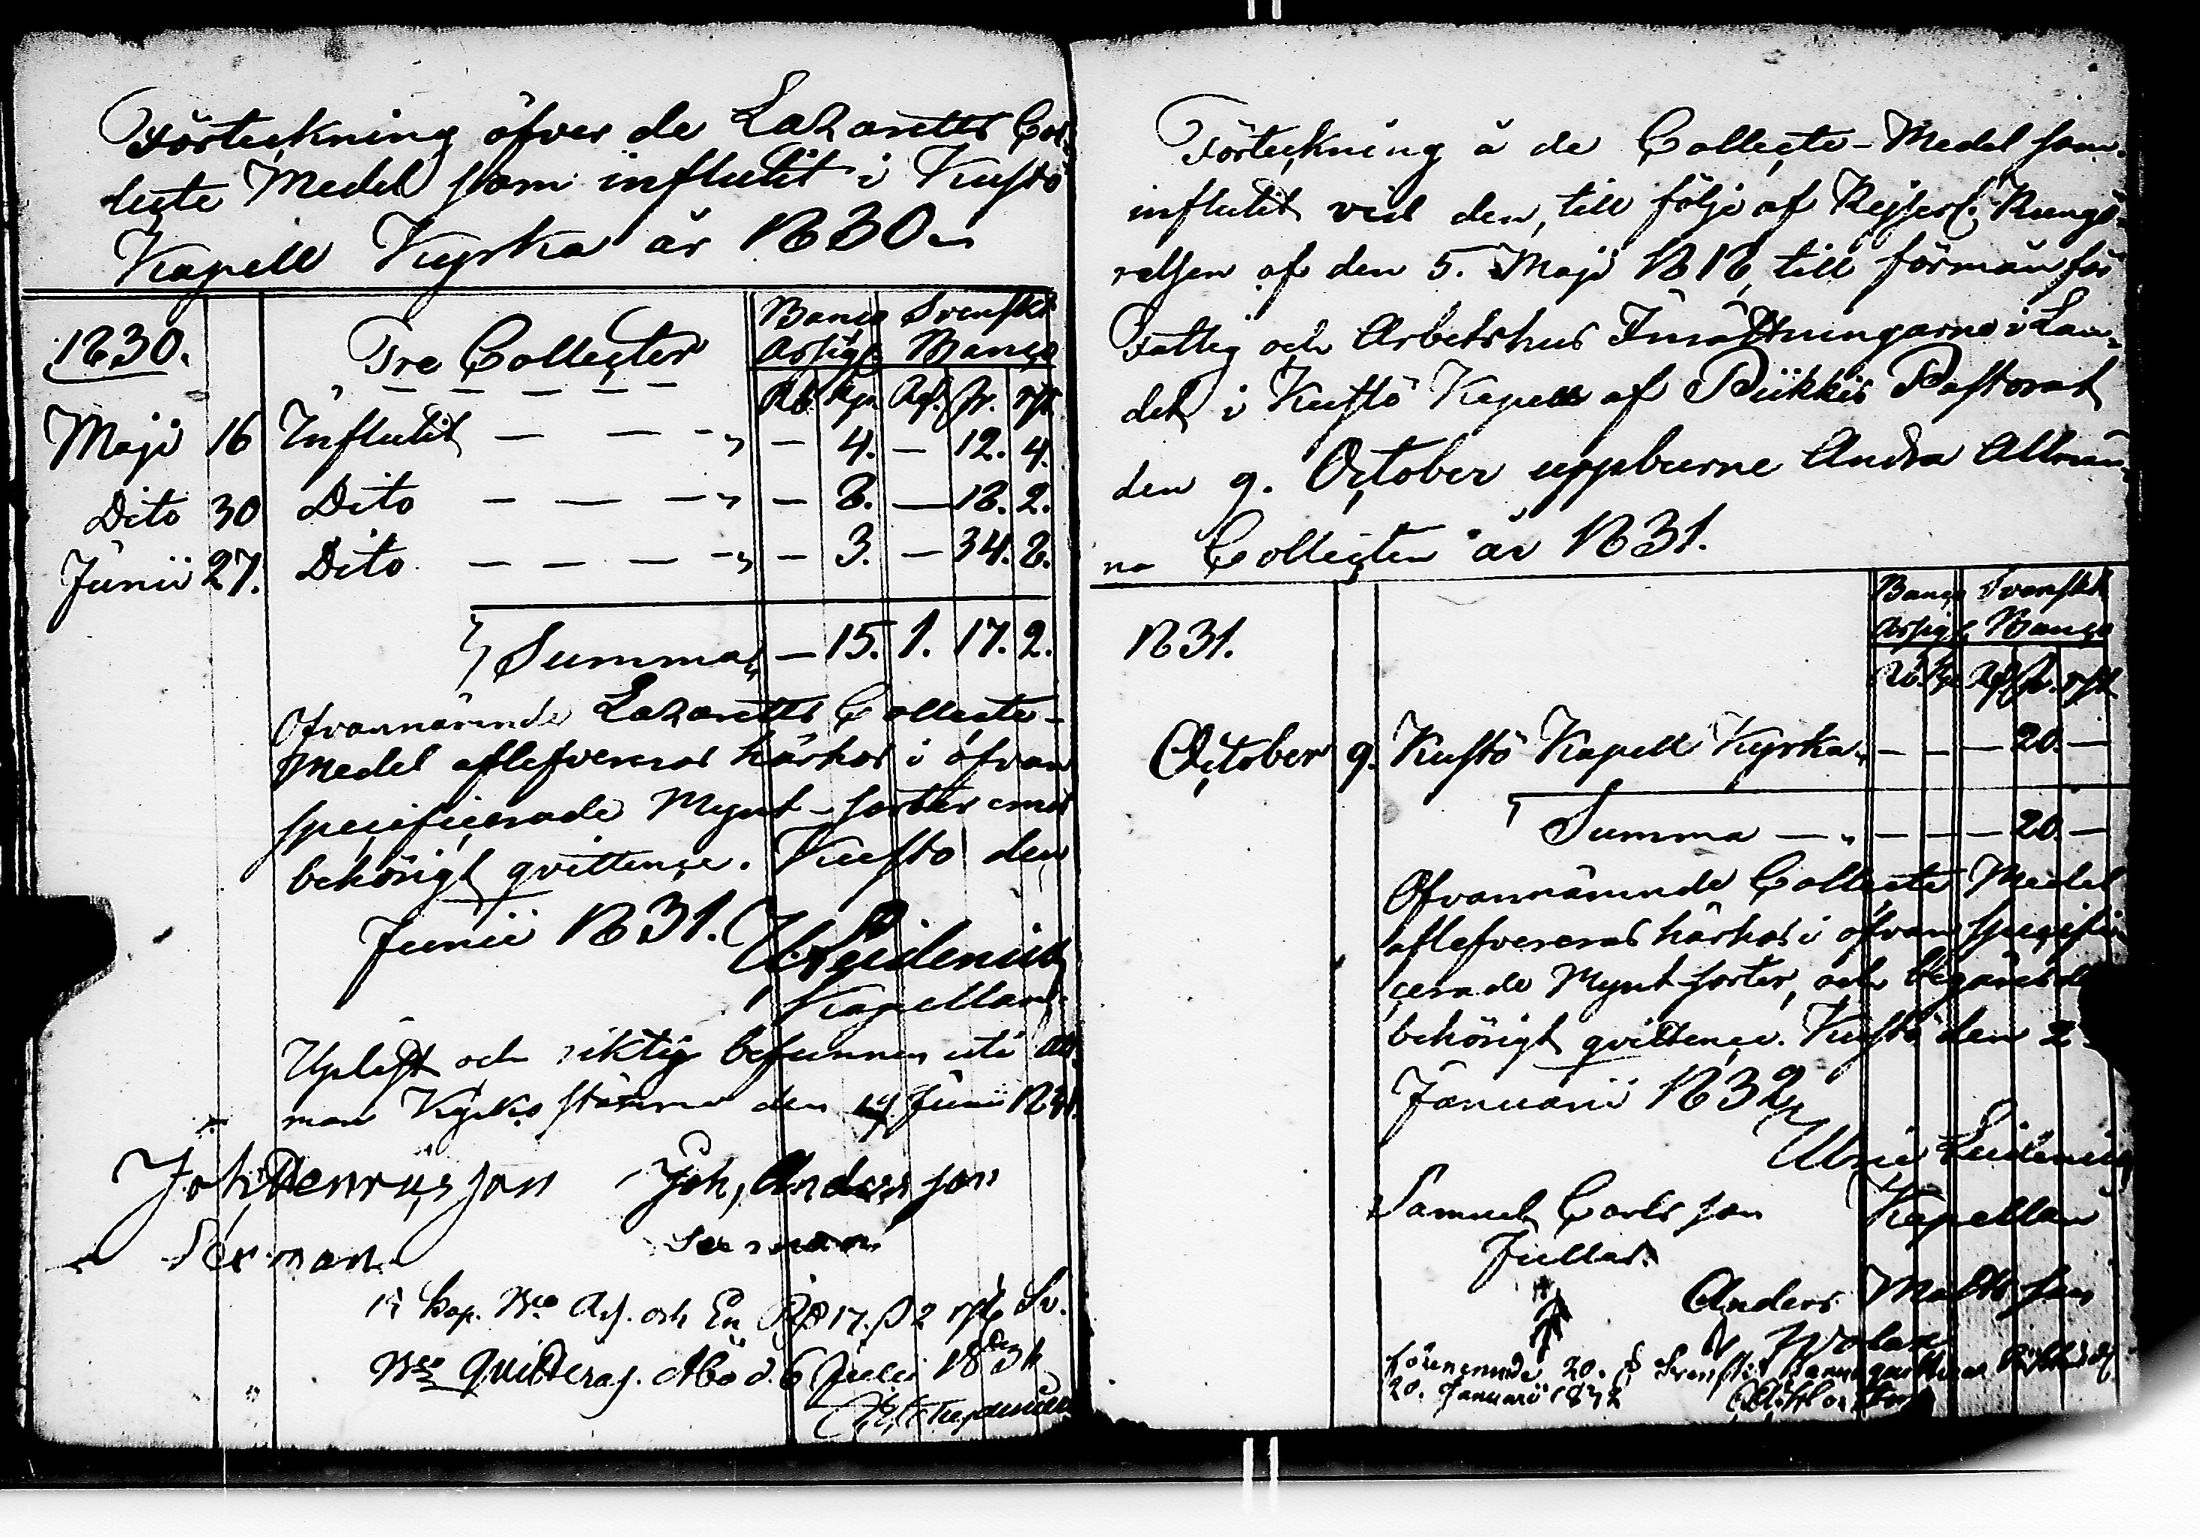 Förteckning öfver de Lazaretts Col-
lecte Medel som influtit i Kustö
Kapell Kyrka år 1830.
1830. Tre Collecter Banco Assign. Svenskt Banco
Rb. Kop. Rd. sk. rst.
Maji 16 Influtit — — — 4. — 12. 4.
Dito 30 Dito — — — 8. — 18. 2.
Junii 27. Dito — — — 3. — 34. 8.
Summa — 15. 1. 17. 2.
Ofvannämnde Lazaretts Collecte-
Medel aflefvereras härhos i ofvan
specificerade Mynt-sorter emot
behörigt qvittence. Kustö den
Junii 1831.
Kapellan.
Upläst och riktig befunnen uti All-
män Kyrkostämma den 19 Junii 1831.
Joh: Henricsson Joh, Andersson
Sexman Sexman
15 Kop. Bco As. och En Rd 17. s 2 rst Sv.
Bco Qvitteras. Åbo d. 6 Julii 1831
Förteckning å de Collecte-Medel som
influtit vid den, till följe af Kejserl. Kungö-
relsen af den 5. Maji 1818, till förmån för
Fattig och Arbetshus Inrättningarne i Lan-
det i Kustö Kapell af Piikkis Pastorat
den 9. October uppburne Andra Allmän-
na Collecten år 1831.
1831. Banco Assign. Svenskt Banco
Rb. Kp. Rd. sk. rst.
October 9. Kustö Kapell Kyrka. — — — 20. —
Summa — — — — 20. —
Ofvannämnde Collecte Medel
aflefvereras härhos i ofvan specifi-
cerade Mynt-sorter, och begäres
behörigt qvittence. Kustö den 2
Januarii 1832.
Ulric Leidenius
Kapellan
Samuel Carlsson
Jullas.
Anders Mattsson
20. Januarii 1832